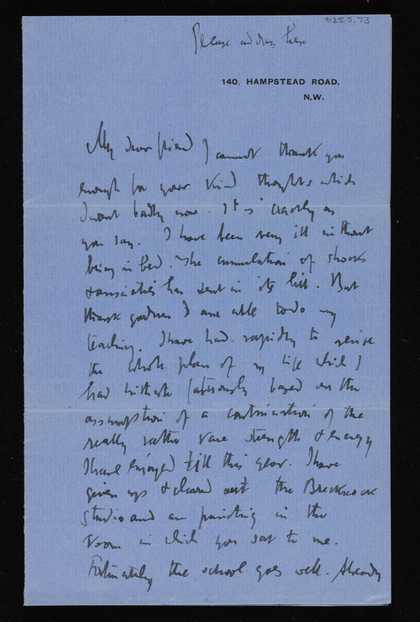 Please address here
140, HAMPSTEAD ROAD,
N.W.
My dear friend I cannot thank you
enough for your kind thoughts which
I want badly now. It is exactly as
you say. I have been very ill without
being in bed. The cumulation of shocks
& anxieties has sent in its bill. But
thank goodness I am able to do my
teaching. I have had rapidly to revise
the whole plan of my life which I
had hitherto fatuously based on the
assumption of a continuation of the
really rather rare strength & energy
I have enjoyed till this year. I have
given up & cleared out the Brecknock
studio and am painting in the
room in which you sat to me.
Fortunately the school goes well. Already